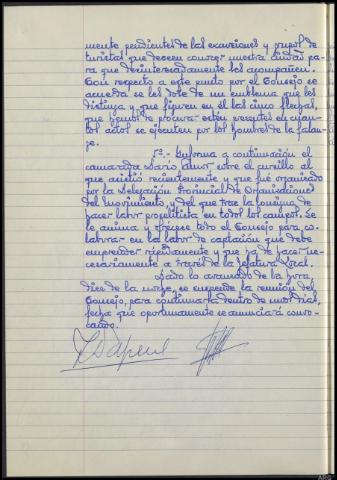 mente pendientes de las excursiones y grupos de
turistas que deseen conocer nuestra ciudad pa-
ra que desinteresadamente les acompañen.
Con respecto a este punto por el Consejo se
acuerda se les dote de un emblema que les
distinga y que figuren en él las cinco flechas,
que hemos de procurar estén presentes en cuan-
tos actos se ejecuten por los hombres de la falan-
ge.
5º.- Informa a continuación el
camarada Darío sobre el cursillo al
que asistió recientemente y que fué organizado
por la Delegación Provincial de Organizaciones
del Movimiento, y del que trae la consigna de
hacer labor proselitista en todos los campos. Se
le anima y ofrécese todo el Consejo para co-
laborar en la labor de captación que debe
emprender rápidamente y que ha de hacer ne-
cesariamente a través de la Jefatura Local.
Dado lo avanzado de la hora,
diez de la noche, se suspende la reunión del
Consejo, para continuarla dentro de unos días,
fecha que oportunamente se anunciará convo-
cando.